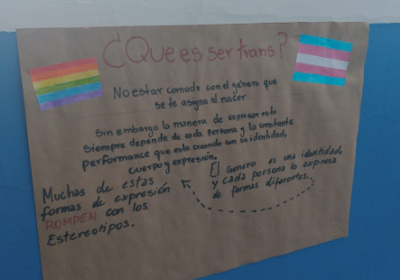 ¿Que es ser trans?
No estar comode con el género que
se te asigna al nacer
Sin embargo la manera de expresar esto
siempre depende de cada persona y la constante
performance que esta creando con su identidad,
cuerpo y expresión.
Género es una identidad,
y cada persona lo expresa
de formas diferentes.
Muchas de estas
formas de expresión
ROMPEN con los
Estereotipos.